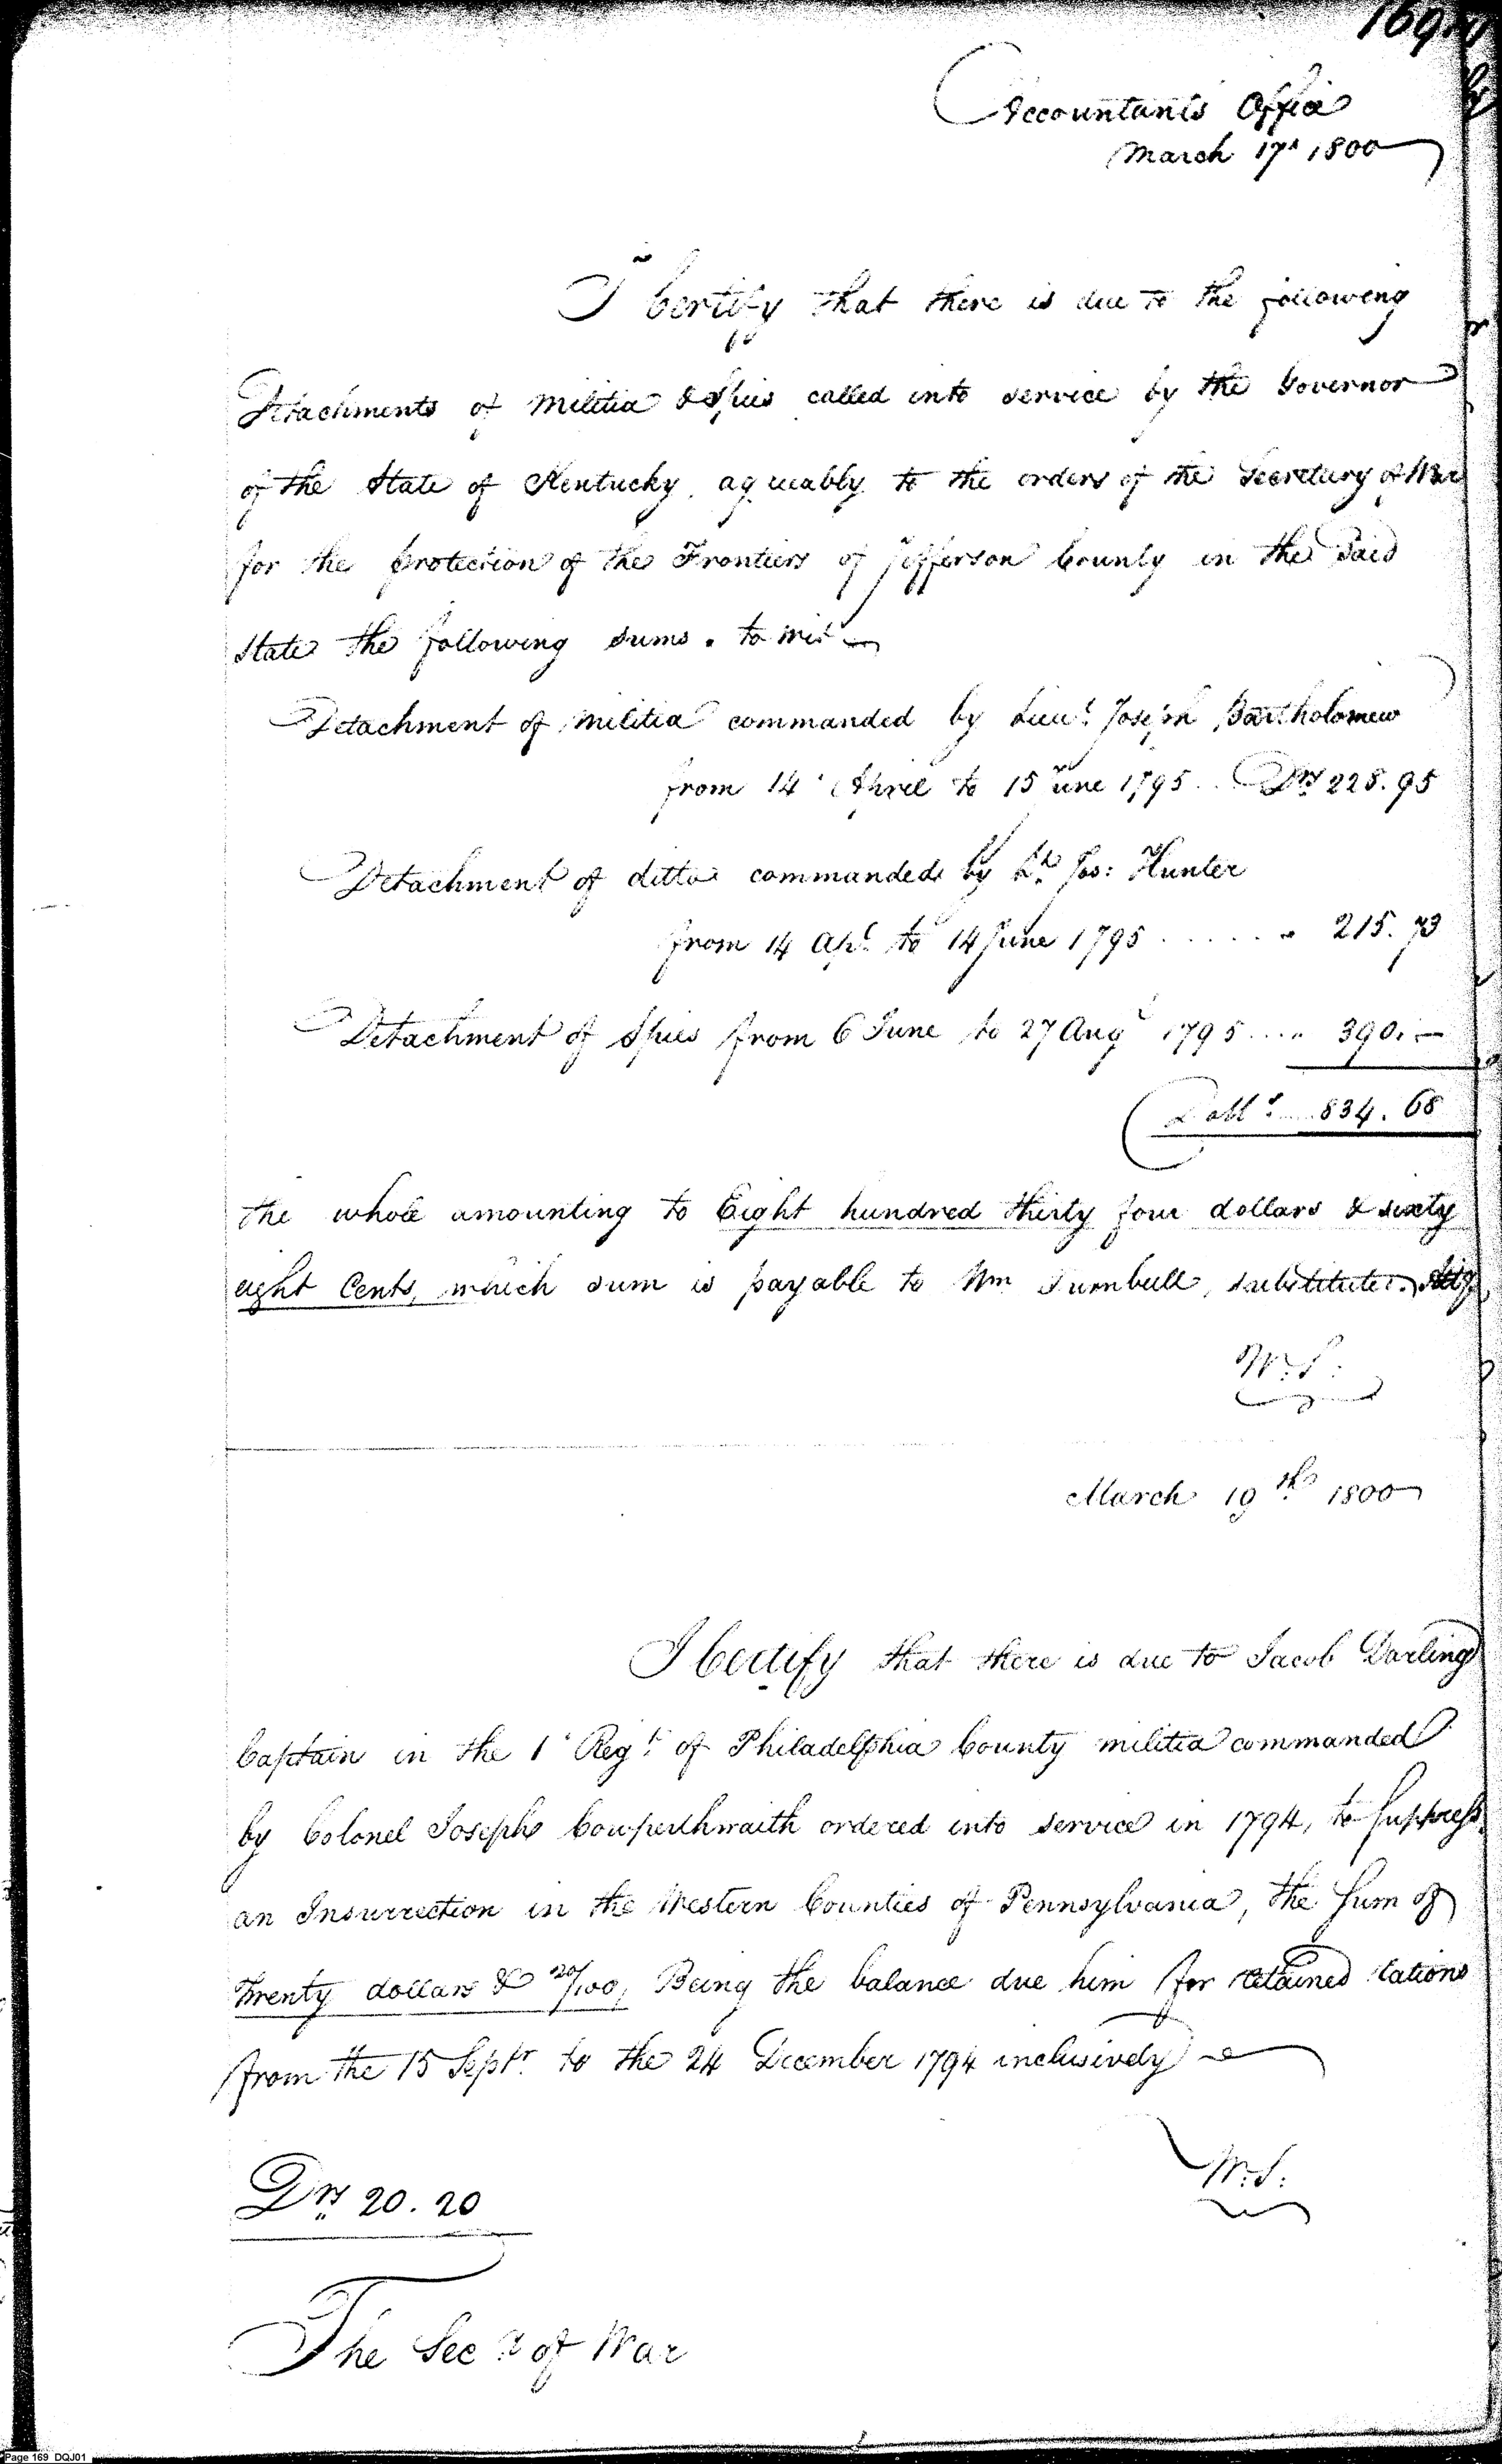 169
Accountants Office
March 17th 1800
I Certify that there is due to the following
Detachments of Militia & Spies called into service by the Governor
of the State of Kentucky, agreeably to the orders of the Secretary of War
for the protection of the Frontiers of Jefferson County in the Said
State the following sums. to wit
Detachment of militia commanded by Lieut. Joseph Bartholomew
from 14 April to 15 June 1795 .. Drs 228.95
Detachment of ditto commanded by Lt. Jos: Hunter
from 14 Apl. to 14 June 1795 ...... " 215.73
Detachment of Spies from 6 June to 27 Augt 1795 .... 390.—
Dolls. 834.68
the whole amounting to Eight hundred thirty four dollars & sixty
eight Cents, which sum is payable to Wm Turnbull, substitute.
W.S:
March 19th 1800
I Certify that there is due to Jacob Darling
Captain in the 1st Regt. of Philadelphia County militia commanded
by Colonel Joseph Cowperthwaith ordered into service in 1794, to Suppress
an Insurrection in the Western Counties of Pennsylvania, the Sum of
Twenty dollars & 20/100, Being the balance due him for retained rations
from the 15 Septr. to the 24 December 1794 inclusively
W.S:
Drs 20.20
The Secy of War
Page 169 DQJ01